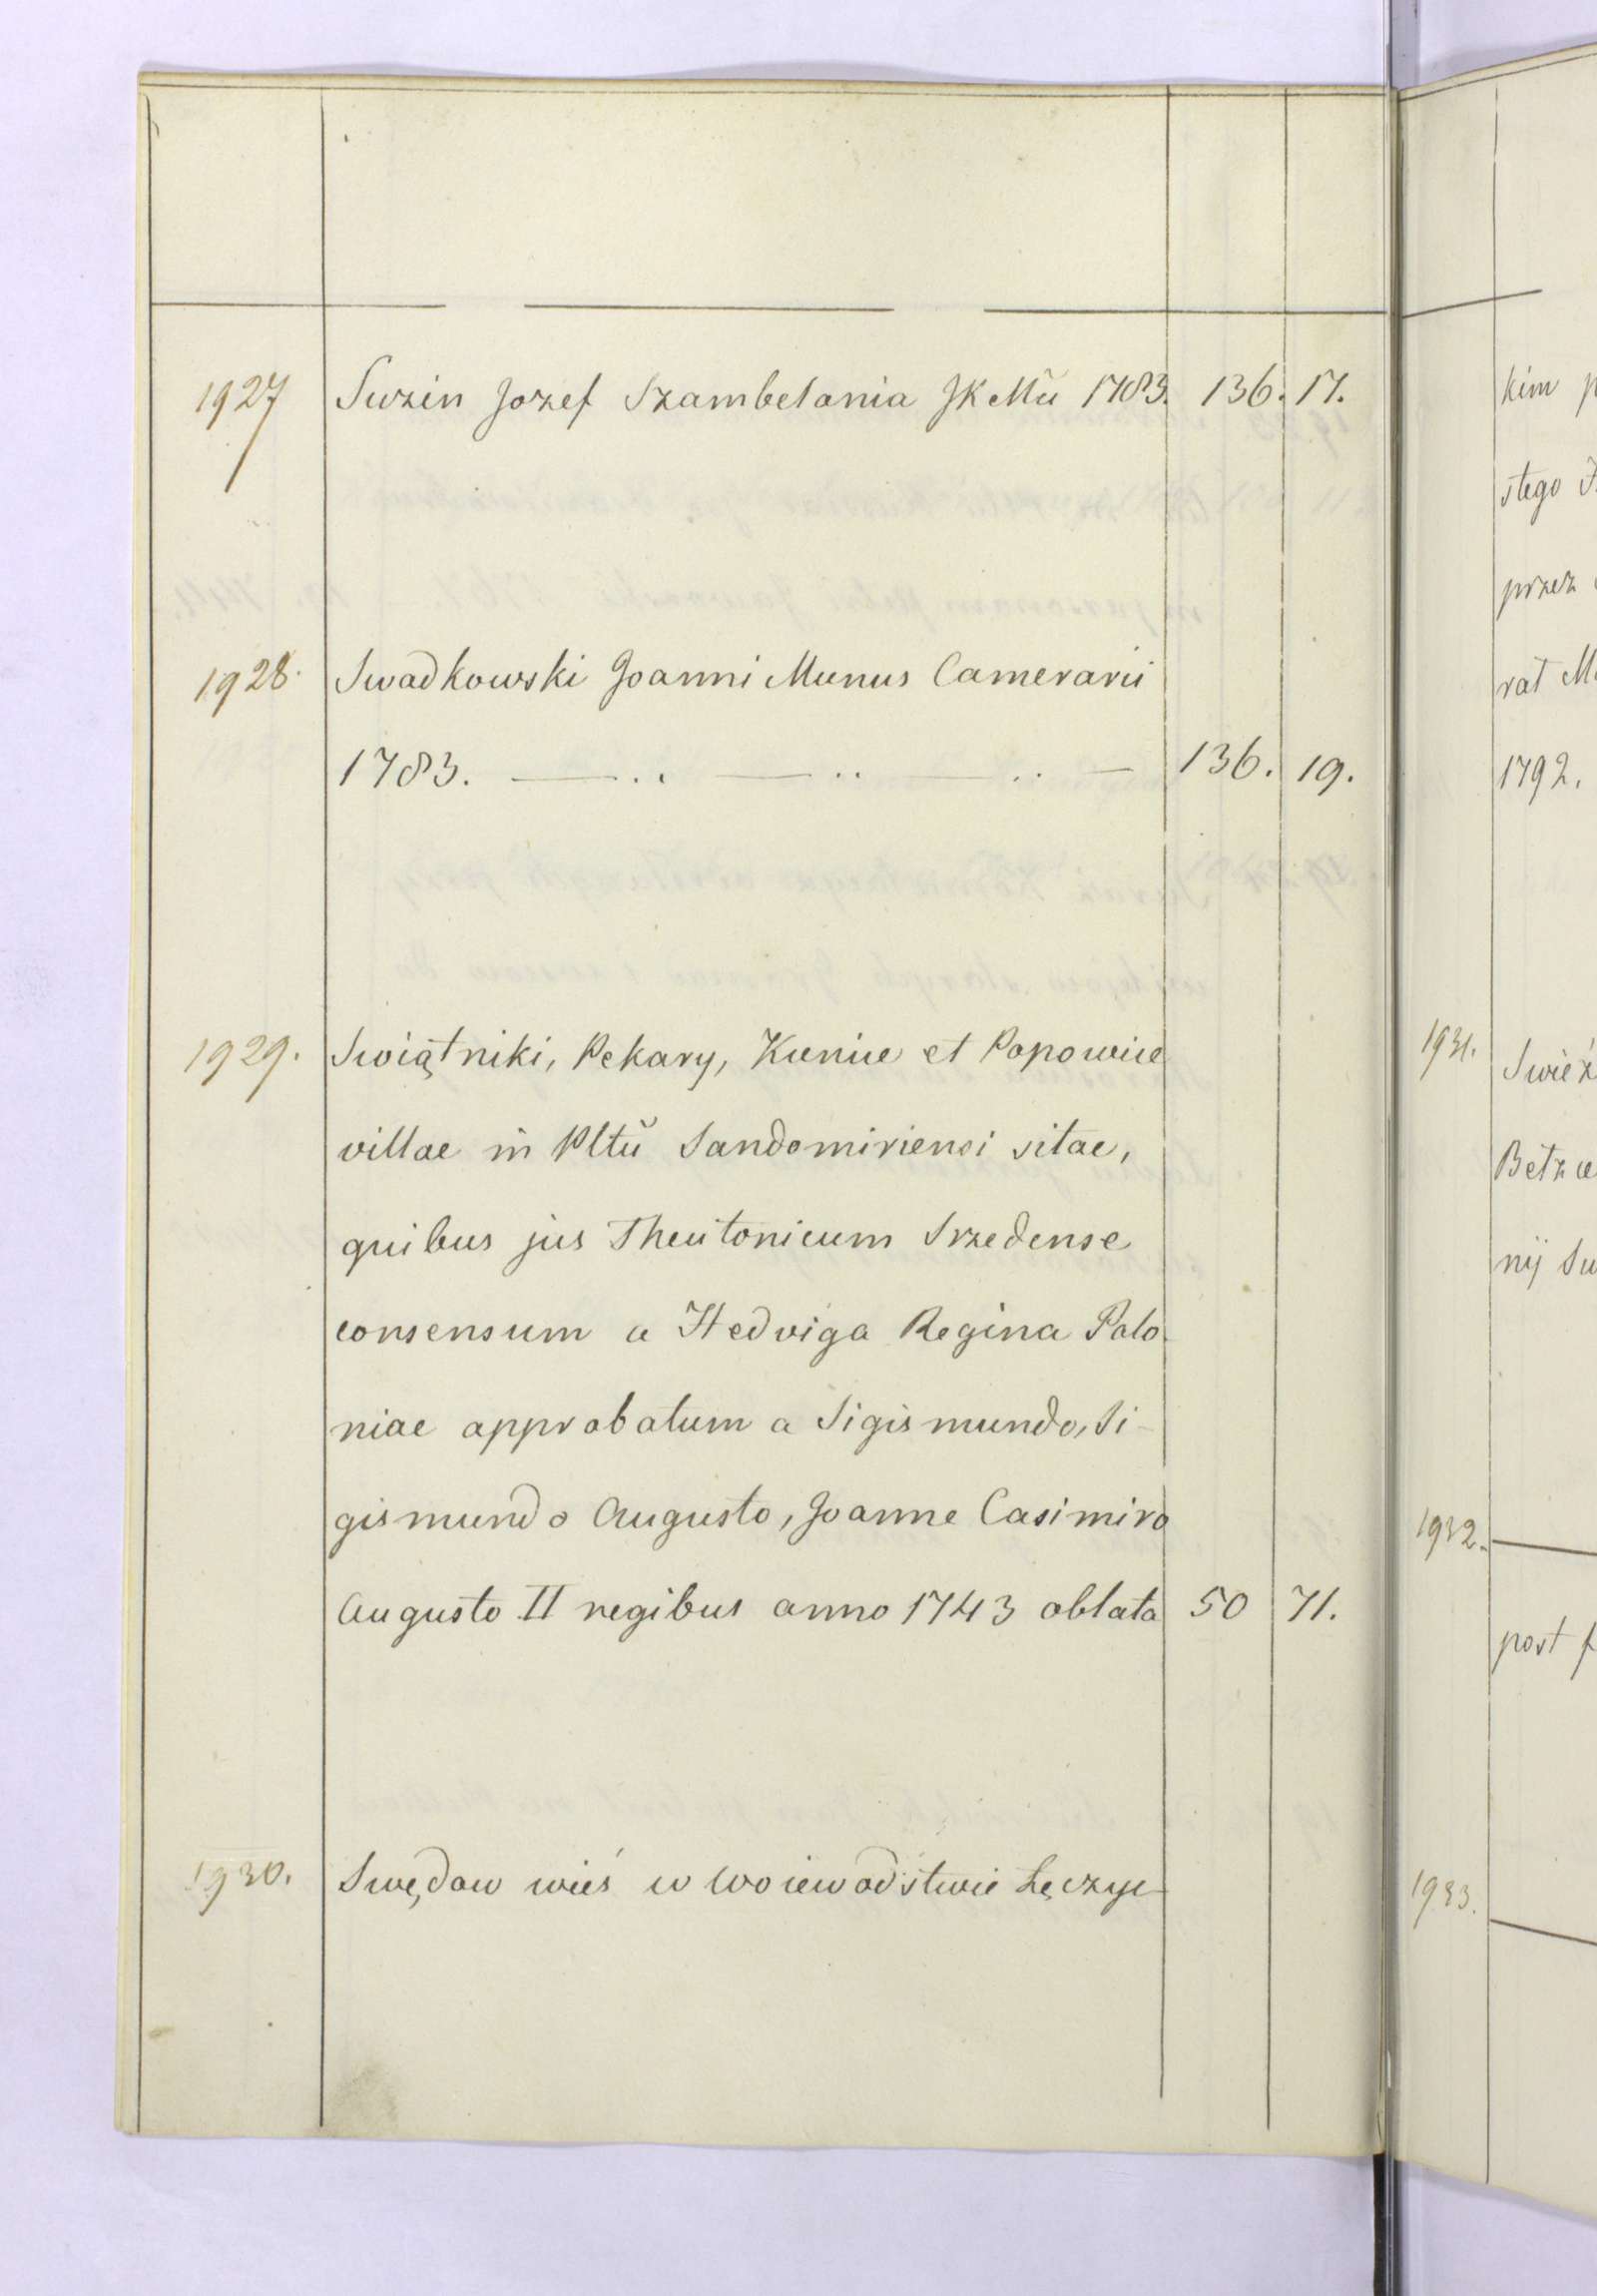 1927 Suzin Jozef Szambelania JKMű 1783. 136. 17.
1928. Swadkowski Joanni Munus Camerarii
1783. — .. — .. — .. — 136. 19.
1929. Swiątniki, Pekary, Kunice et Popowice
villae in Pltŭ Sandomiriensi sitae,
quibus jus Theutonicum Srzedense
consensum a Hedviga Regina Polo
niae approbatum a Sigismundo, Si-
gismundo Augusto, Joanne Casimiro
Augusto II regibus anno 1743 oblata 50 71.
1930. Swędow wieś w woiewodstwie Łęczyc-
kim p
stego
przez
rat
1792.
1931. Swież
Betz
nij Su
1932. —
post f
1933. —